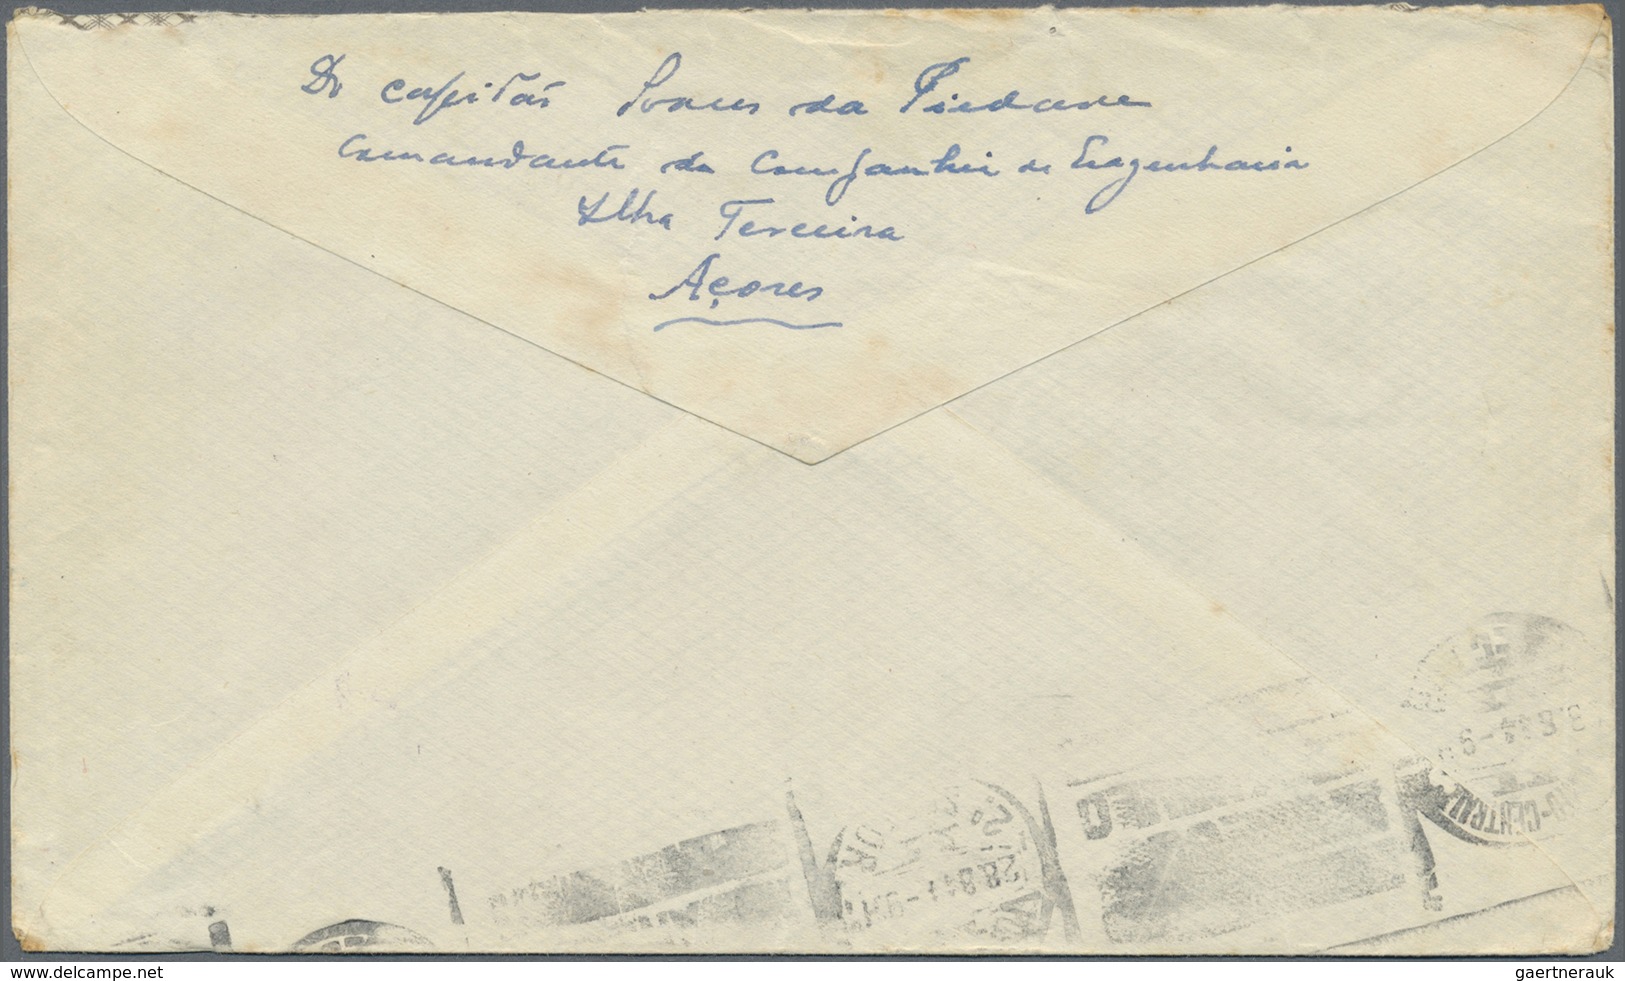 Do capitão Soares da Piedade
Comandante da Companhia de Engenharia
Ilha Terceira
Açores
28.8.44-9
3.8.44-9
CENTRAL
www.delcampe.net
gaertnerauk